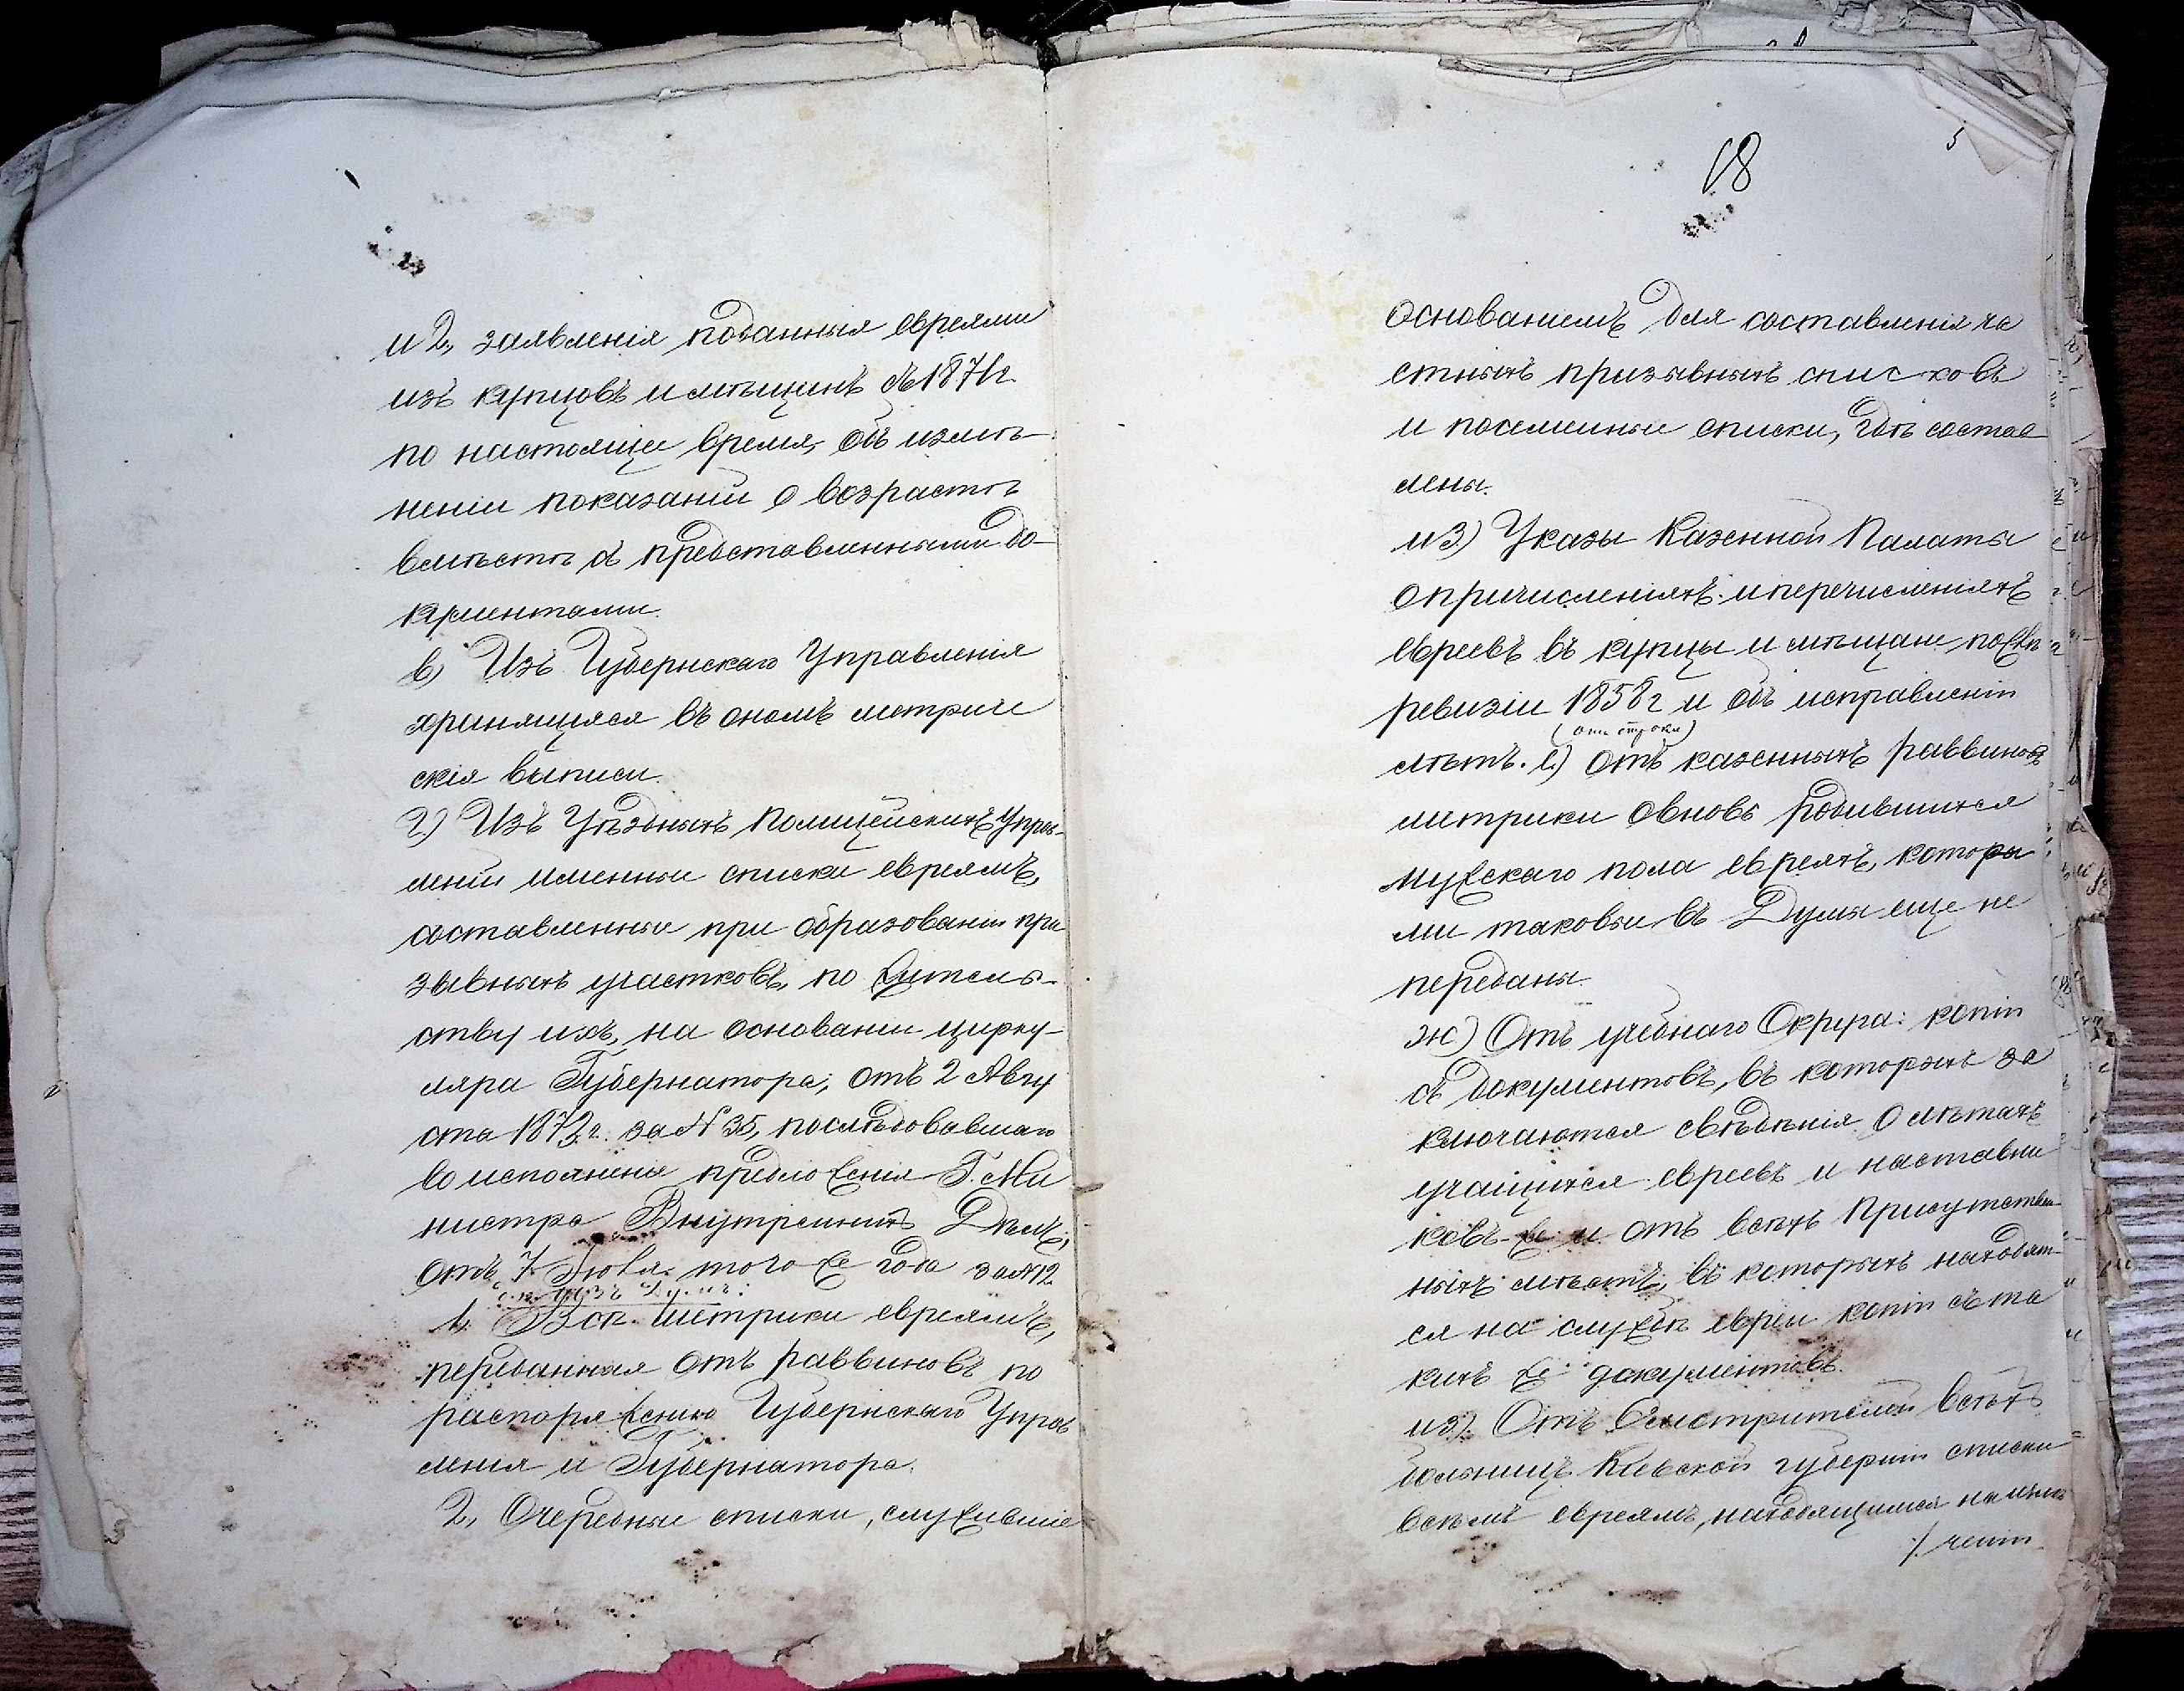 и 2, заявленія поданныя евреями
изъ купцовъ и мѣщанъ съ 1871г.
по настоящее время, объ измѣ-
неніи показаній о возрастѣ
вмѣстѣ съ представленными до-
кументами.
в) Изъ Губернскаго Управленія
хранящіяся въ ономъ метриче
скія выписи.
г) Изъ Уѣздныхъ Полицейскихъ Управ-
леній именные списки евреямъ,
составленные при образованіи при
зывныхъ участковъ, по житель-
ству ихъ, на основаніи цирку-
ляра Губернатора, отъ 2 Авгу
ста 187 г. за № 35, послѣдовавшаго
во исполненіе предложенія Г. Ми
нистра Внутреннихъ Дѣлъ,
отъ 7 Іюля того же года за №12.
изъ Думъ:
1. Всѣ метрики евреямъ,
переданныя отъ раввиновъ по
распоряженію Губернскаго Управ
ленія и Губернатора.
2, Очередные списки, служившіе
18
5
основаніемъ для составленія ча
стныхъ призывныхъ списковъ
и посемейные списки, гдѣ состав
лены.
и 3) Указы Казенной Палаты
о причисленіяхъ и перечисленіяхъ
евреевъ въ купцы и мѣщане послѣ
ревизіи 1858г и объ исправленіи
строки)
лѣтъ. е) отъ казенныхъ раввиновъ
метрики о вновь родившихся
мужескаго пола евреяхъ, которы
ми таковые въ Думы еще не
переданы.
ж) Отъ учебнаго Округа: копіи
съ документовъ, въ которыхъ за
ключаются свѣдѣнія о лѣтахъ
учащихся евреевъ и наставни
ковъ же и отъ всѣхъ Присутствен
ныхъ мѣстъ, въ которыхъ находят-
ся на службѣ евреи копіи съ та
кихъ же документовъ.
и з). Отъ Смотрителей всѣхъ
больницъ Кіевской губерніи списки
всѣмъ евреямъ, находящимся на излѣ
/. ченіи.